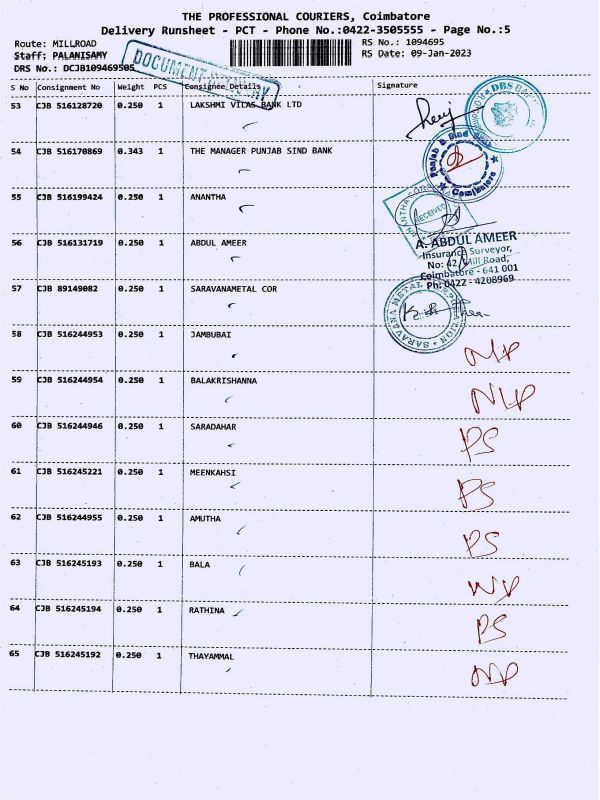 THE PROFESSIONAL COURIERS, Coimbatore
Delivery Runsheet - PCT - Phone No.:0422-3505555 - Page No.:5
Route: MILLROAD RS No.: 1094695
Staff: PALANISAMY RS Date: 09-Jan-2023
DRS No.: DCJB109469505
S No Consignment No Weight PCS Consignee Details Signature
53 CJB 516128720 0.250 1 LAKSHMI VILAS BANK LTD
54 CJB 516170869 0.343 1 THE MANAGER PUNJAB SIND BANK
Punjab & Sind
Coimbatore
55 CJB 516199424 0.250 1 ANANTHA
RECEIVED
56 CJB 516131719 0.250 1 ABDUL AMEER
A. ABDUL AMEER
Insurance Surveyor,
No: 42, Mill Road,
Coimbatore - 641 001
Ph: 0422 - 4208969
57 CJB 89149082 0.250 1 SARAVANAMETAL COR
SARAVANA METAL CORPORATION
58 CJB 516244953 0.250 1 JAMBUBAI
59 CJB 516244954 0.250 1 BALAKRISHANNA
60 CJB 516244946 0.250 1 SARADAHAR PS
61 CJB 516245221 0.250 1 MEENKAHSI PS
62 CJB 516244955 0.250 1 AMUTHA PS
63 CJB 516245193 0.250 1 BALA
64 CJB 516245194 0.250 1 RATHINA PS
65 CJB 516245192 0.250 1 THAYAMMAL